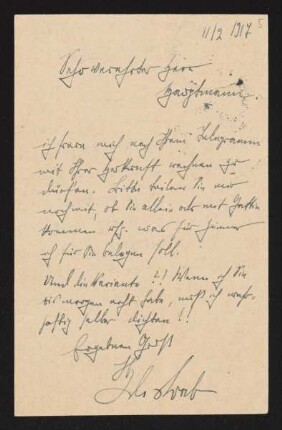 11/2 1917 5
Sehr verehrter Herr
Hauptmann!
ich freue mich nach Ihrem Telegramm
mit Ihrer Herkunft rechnen zu
dürfen. Bitte teilen Sie mir
noch mit, ob Sie allein oder mit Gattin
kommen u. was für Zimmer
ich für Sie belegen soll.
Und die Variante!! Wenn ich Sie
bis morgen nicht habe, muß ich
selber dichten!!
Ergebenen Gruß
Ihr